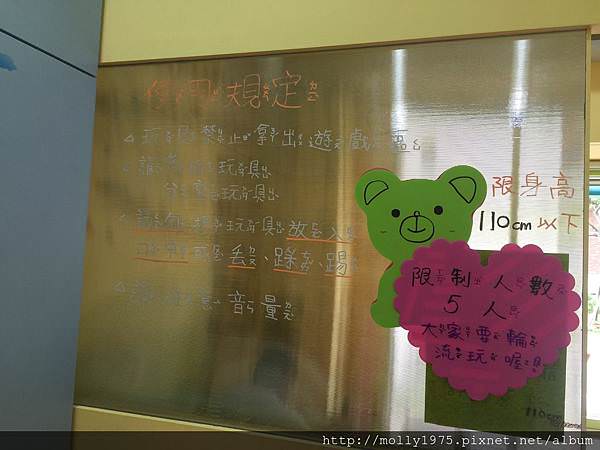 使用規定
△ 玩具禁止拿出遊戲區
玩具
分享玩具
△ 請勿將玩具放入
口中或丟、踩、踢
△ 請注意音量
限身高
110cm以下
限制人數
5人
大家要輪
流玩喔！
110cm
http://molly1975.pixnet.net/album